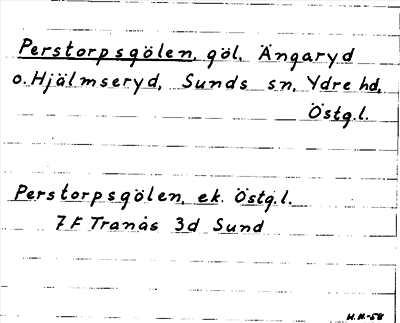 Perstorpsgölen, göl, Ängaryd
o. Hjälmseryd, Sunds sn, Ydre hd,
Östg.l.
Perstorpsgölen, ek. Östg.l.
7 F Tranås 3d Sund
H.H.-58